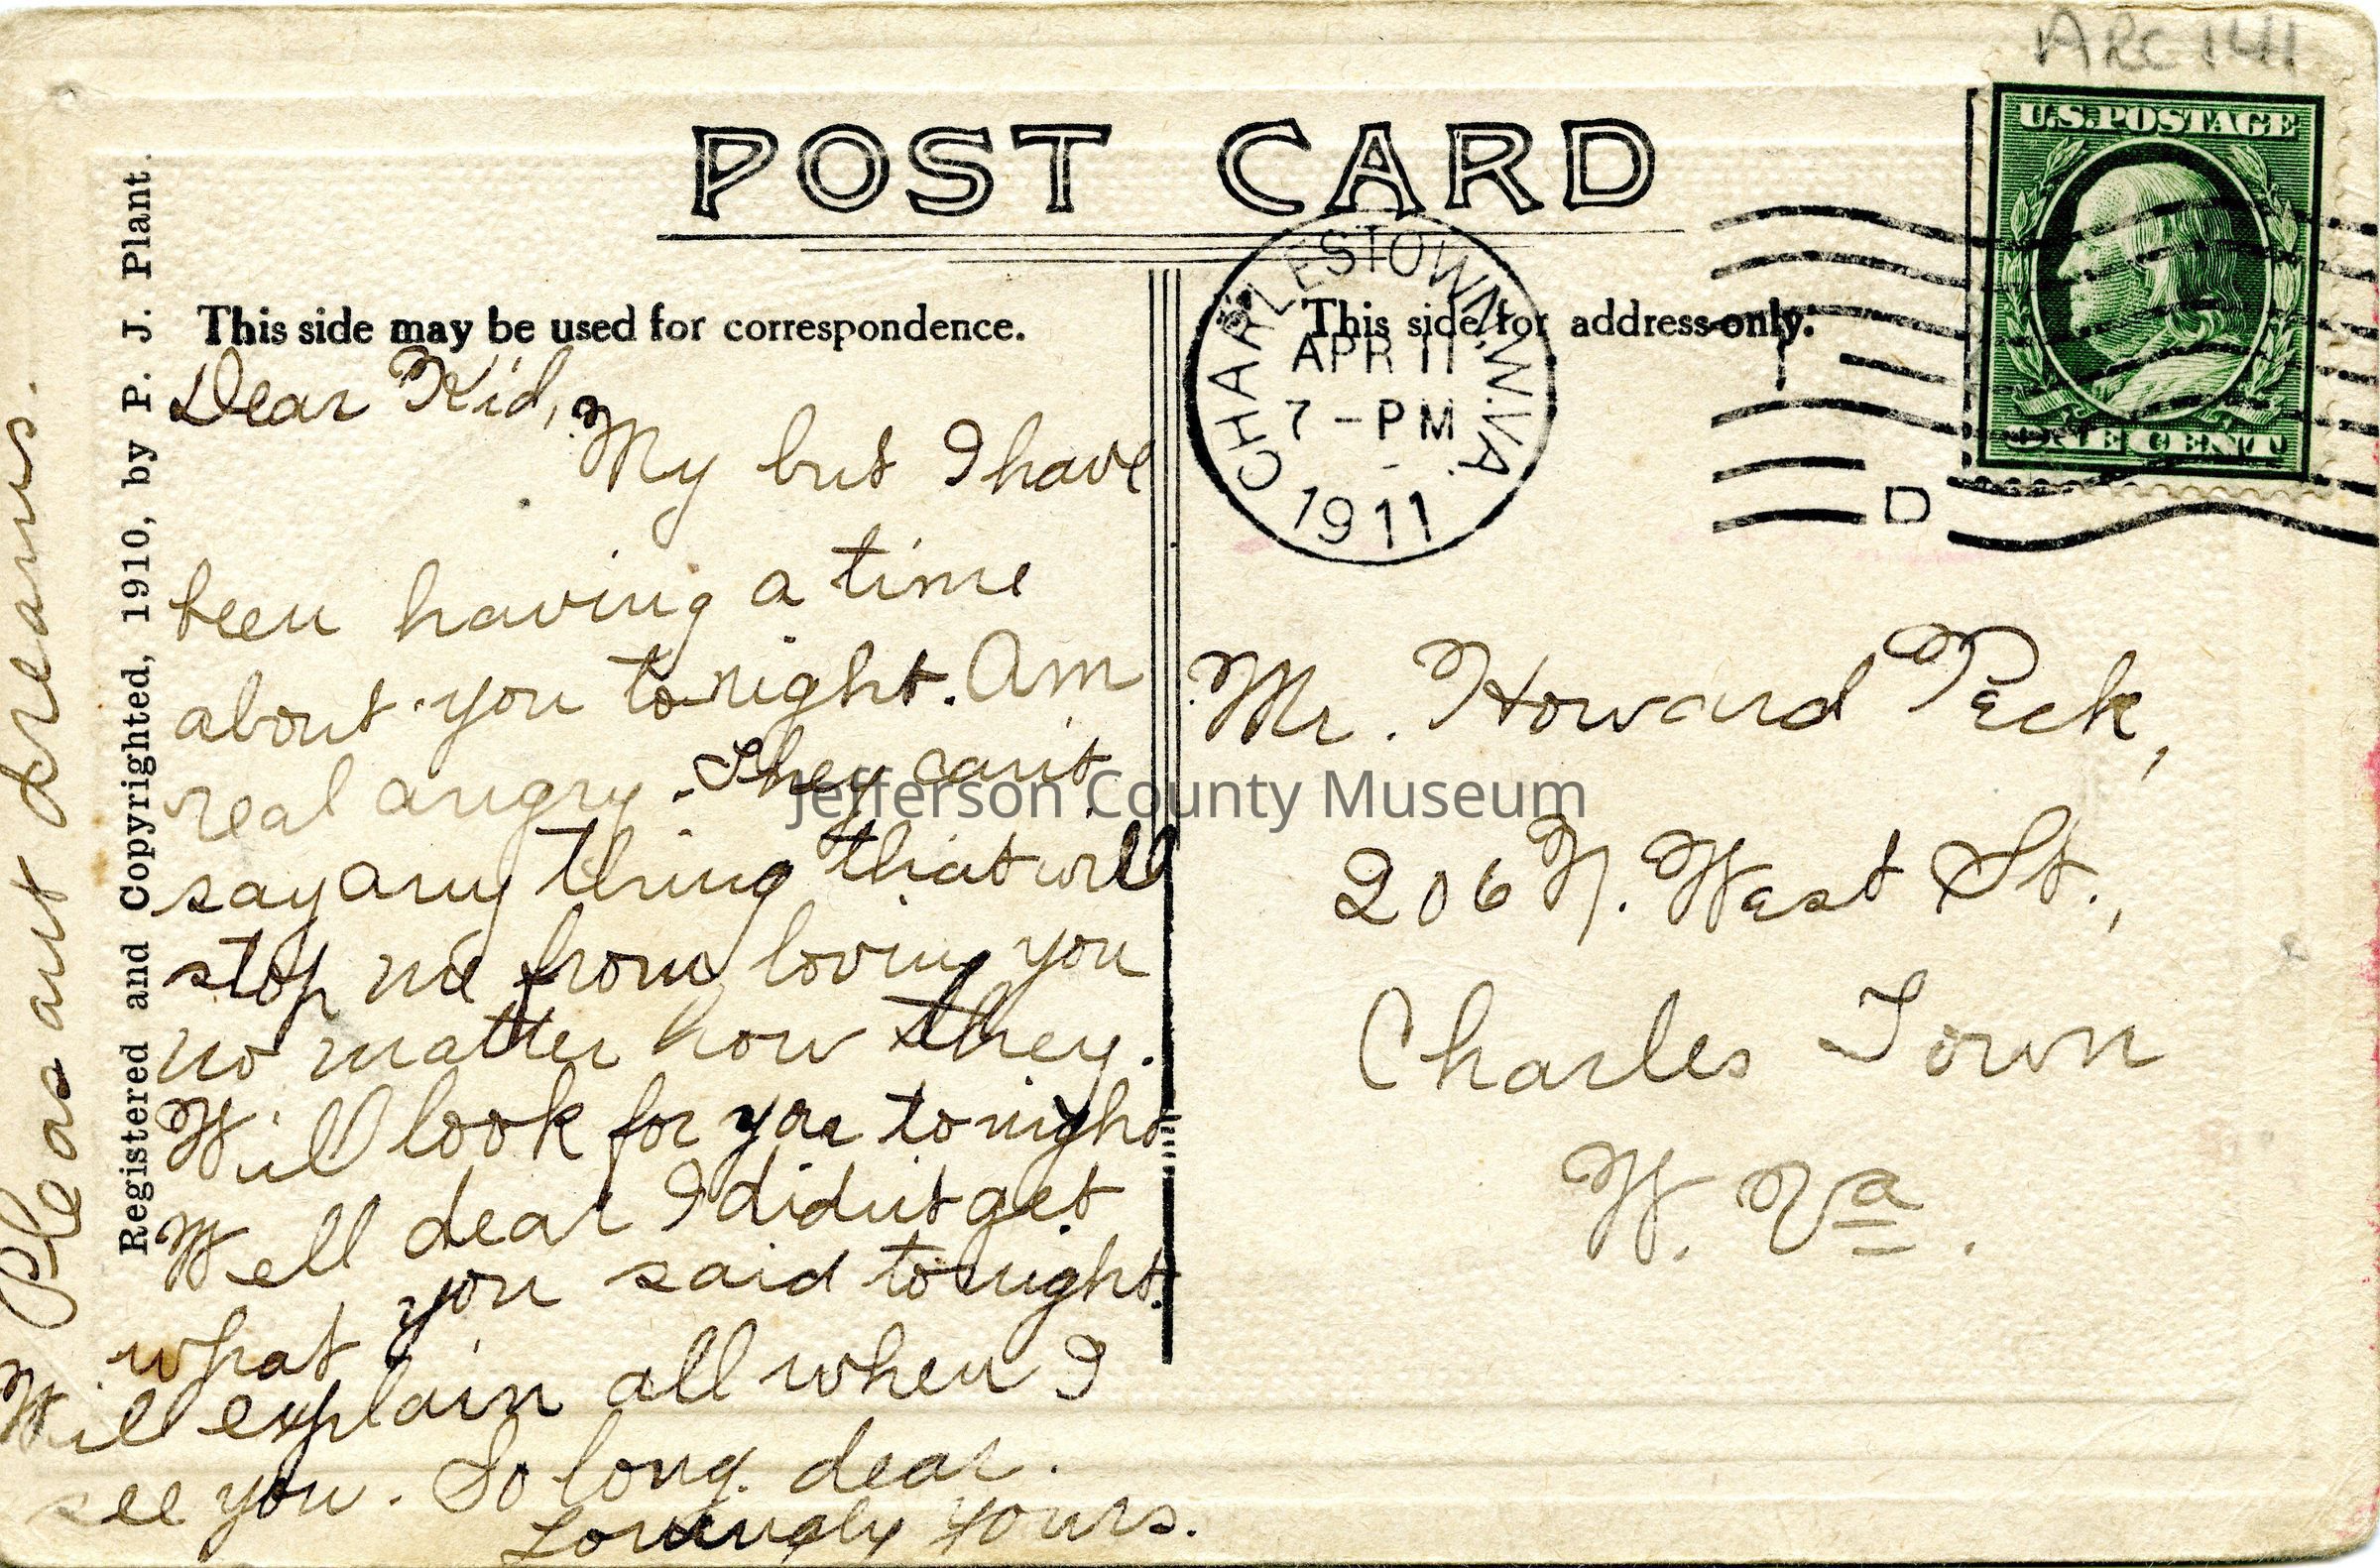 ARC 141
U.S. POSTAGE
ONE CENT
POST CARD
CHARLESTOWN, W. VA.
APR 11
7 - PM
1911
D
This side may be used for correspondence.
This side for address only.
Registered and Copyrighted, 1910, by P. J. Plant.
Dear Kid,
My but I have
been having a time
about you to-night. Am
real angry. They can't
say any thing that will
stop me from loving you
no matter how they.
Will look for you tonight
Well dear I didn't get
what you said to-night.
Will explain all when I
see you. So long. dear.
Lovingly Yours.
Pleasant dreams.
Mr. Howard Peck,
206 N. West St.,
Charles Town
W. Va.
Jefferson County Museum